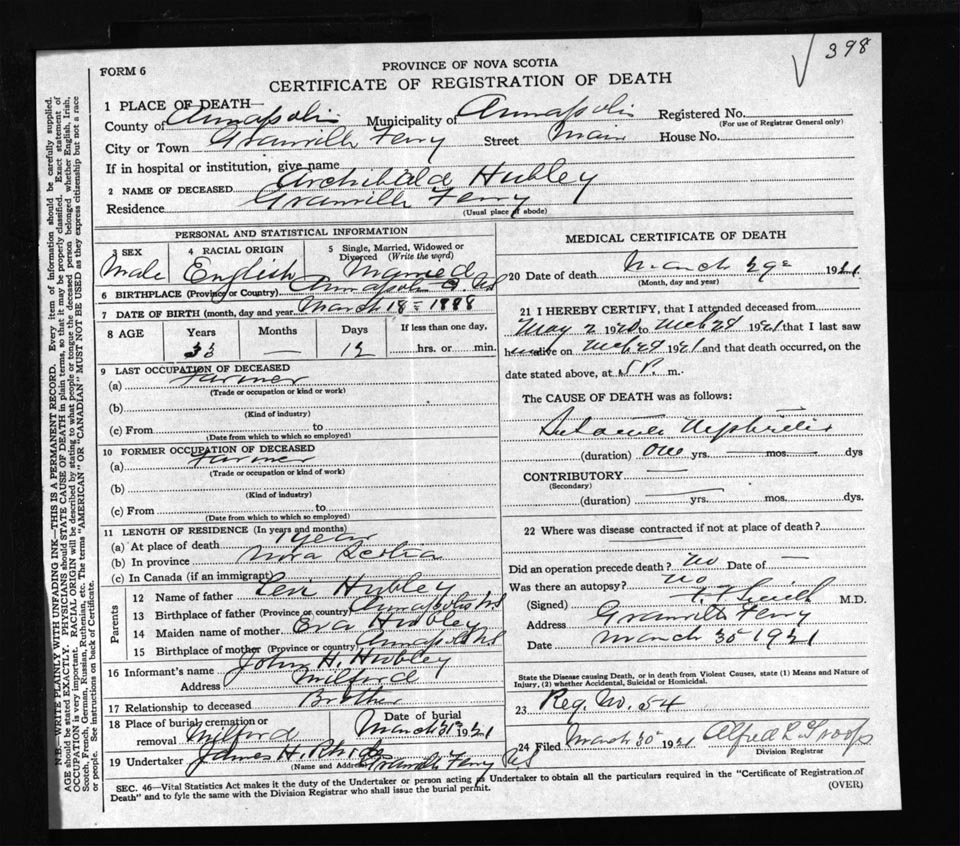 398
FORM 6
PROVINCE OF NOVA SCOTIA
CERTIFICATE OF REGISTRATION OF DEATH
1 PLACE OF DEATH—
County of Annapolis Municipality of Annapolis Registered No.
(For use of Registrar General only)
City or Town Granville Ferry Street Main House No.
If in hospital or institution, give name
2 NAME OF DECEASED Archibald Hubley
Residence Granville Ferry
(Usual place of abode)
PERSONAL AND STATISTICAL INFORMATION
3 SEX 4 RACIAL ORIGIN 5 Single, Married, Widowed or Divorced (Write the word)
Male English Married
6 BIRTHPLACE (Province or Country) Annapolis Co. NS
7 DATE OF BIRTH (month, day and year March 18 - 1888
8 AGE Years Months Days If less than one day,
33 — 12 hrs. or min.
9 LAST OCCUPATION OF DECEASED
(a) Farmer
(Trade or occupation or kind or work)
(b)
(Kind of industry)
(c) From to
(Date from which to which so employed)
10 FORMER OCCUPATION OF DECEASED
(a) Farmer
(Trade or occupation or kind of work)
(b)
(Kind of industry)
(c) From to
(Date from which to which so employed)
11 LENGTH OF RESIDENCE (In years and months)
(a) At place of death 1 year
(b) In province Nova Scotia
(c) In Canada (if an immigrant)
Parents
12 Name of father Levi Hubley
13 Birthplace of father (Province or country) Annapolis NS
14 Maiden name of mother Eva Hubley
15 Birthplace of mother (Province or country) Annapolis NS
16 Informant's name John H. Hubley
Address Milford
17 Relationship to deceased Brother
18 Place of burial, cremation or removal Milford Date of burial March 31st 1921
19 Undertaker James H. Rhodes
(Name and Address) Granville Ferry NS
MEDICAL CERTIFICATE OF DEATH
20 Date of death March 29 1921
(Month, day and year)
21 I HEREBY CERTIFY, that I attended deceased from
May 2 to Mch 29 1921 that I last saw
h alive on Mch 29 1921 and that death occurred, on the
date stated above, at 5 P. m.
The CAUSE OF DEATH was as follows:
Nephritis
(duration) One yrs. — mos. — dys
CONTRIBUTORY —
(Secondary)
(duration) yrs. mos. dys.
22 Where was disease contracted if not at place of death?
Did an operation precede death? no Date of —
Was there an autopsy? no
(Signed) M.D.
Address Granville Ferry
Date March 30 1921
State the Disease causing Death, or in death from Violent Causes, state (1) Means and Nature of
Injury, (2) whether Accidental, Suicidal or Homicidal.
23 Reg. No. 54
24 Filed March 30 1921 Alfred R. Troop
Division Registrar
SEC. 46—Vital Statistics Act makes it the duty of the Undertaker or person acting as Undertaker to obtain all the particulars required in the "Certificate of Registration of
Death" and to fyle the same with the Division Registrar who shall issue the burial permit.
(OVER)
N.B.—WRITE PLAINLY WITH UNFADING INK—THIS IS A PERMANENT RECORD. Every item of information should be carefully supplied.
AGE should be stated EXACTLY. PHYSICIANS should STATE CAUSE OF DEATH in plain terms, so that it may be properly classified. Exact statement of
OCCUPATION is very important. RACIAL ORIGIN will be described by stating to what people or tongue the deceased person belonged, whether English, Irish,
Scotch, French, German, Russian, Ruthenian, etc. The terms "AMERICAN" OR "CANADIAN" MUST NOT BE USED as they express citizenship but not a race
or people. See instructions on back of Certificate.